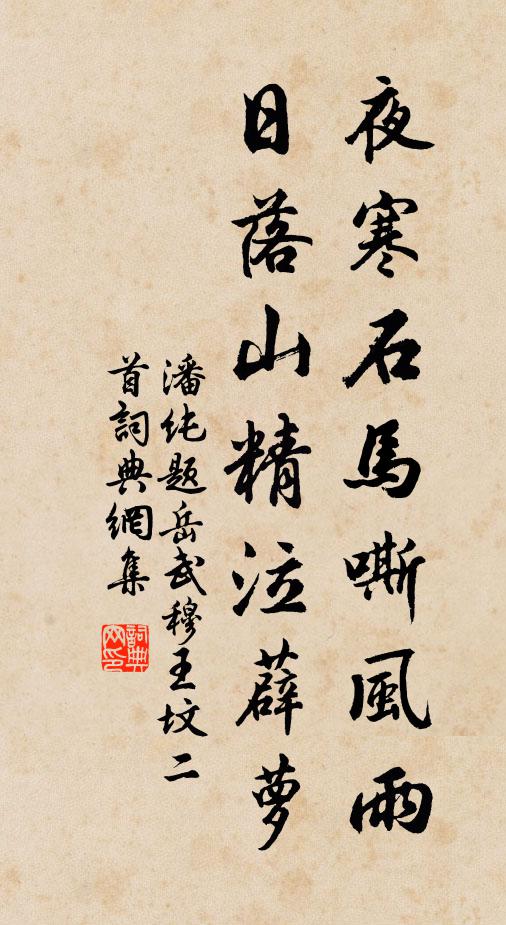 夜寒石馬嘶風雨
日落山精泣薜萝
潘纯题岳武穆王坟二
首詞典網集
詞典
网印